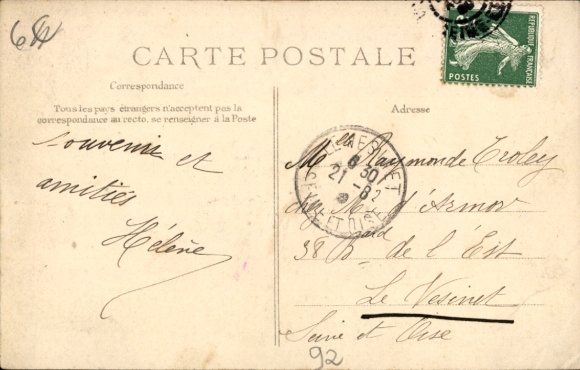 6H
CARTE POSTALE
REPUBLIQUE FRANÇAISE
POSTES
Correspondance
Tous les pays étrangers n'acceptent pas la
correspondance au recto, se renseigner à la Poste
Adresse
Souvenir et
amitiés
Hélène
LE VESINET
6 30
21 - 8
SEINE ET OISE
Mlle Raymonde Troley
chez Mr d'Armor
38 Bard de l'Est
Le Vésinet
Seine et Oise
92